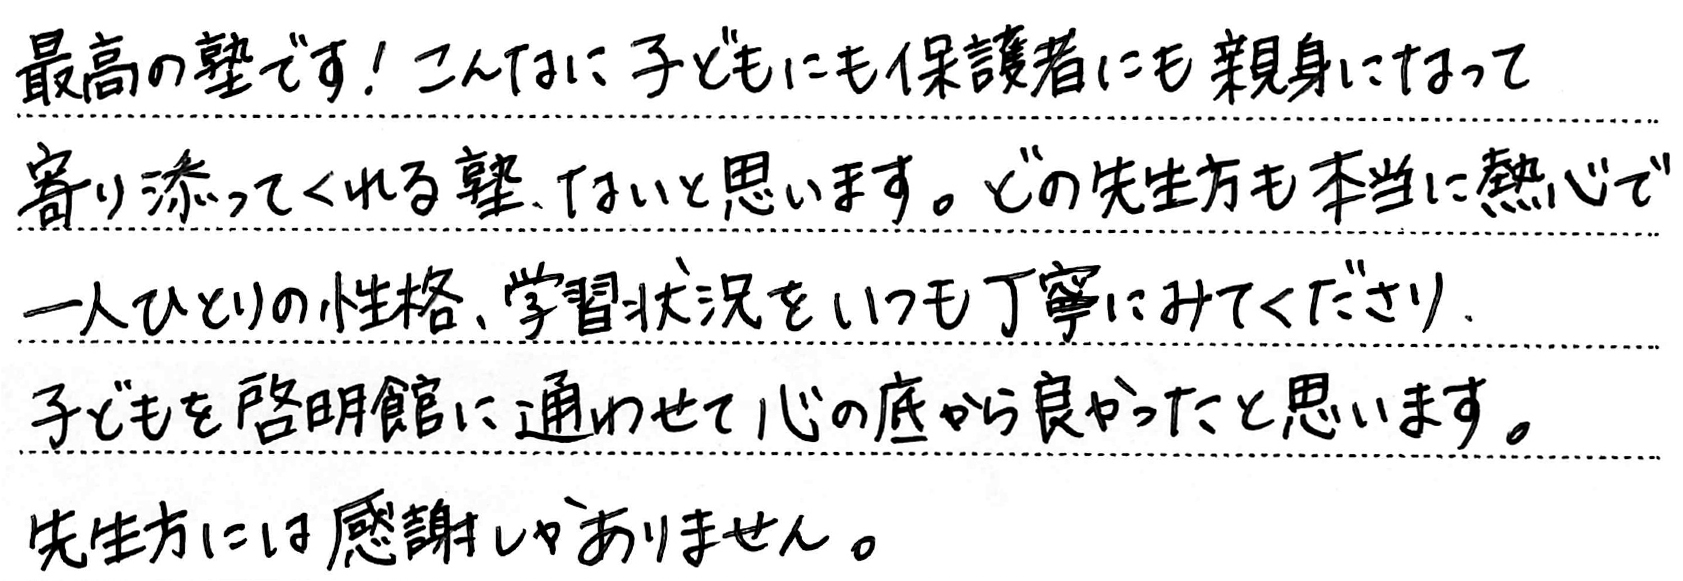 最高の塾です！こんなに子どもにも保護者にも親身になって
寄り添ってくれる塾、ないと思います。どの先生方も本当に熱心で
一人ひとりの性格、学習状況をいつも丁寧にみてくださり、
子どもを啓明館に通わせて心の底から良かったと思います。
先生方には感謝しかありません。